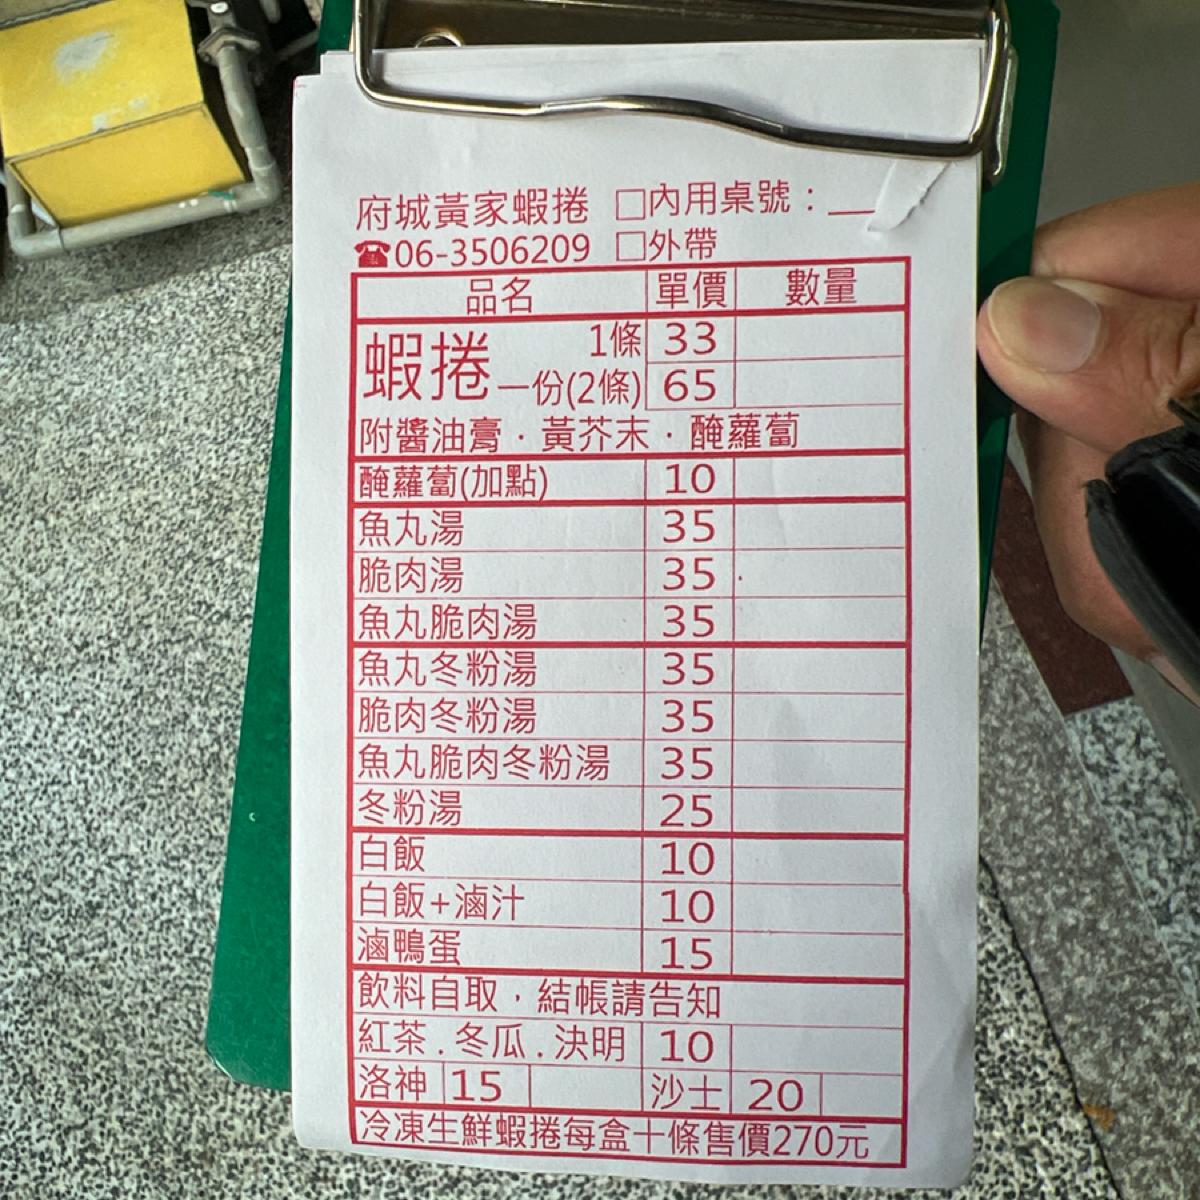 府城黃家蝦捲 □內用桌號：
☎06-3506209 □外帶
品名 單價 數量
蝦捲 1條 33
一份(2條) 65
附醬油膏．黃芥末．醃蘿蔔
醃蘿蔔(加點) 10
魚丸湯 35
脆肉湯 35
魚丸脆肉湯 35
魚丸冬粉湯 35
脆肉冬粉湯 35
魚丸脆肉冬粉湯 35
冬粉湯 25
白飯 10
白飯+滷汁 10
滷鴨蛋 15
飲料自取，結帳請告知
紅茶．冬瓜．決明 10
洛神 15 沙士 20
冷凍生鮮蝦捲每盒十條售價270元